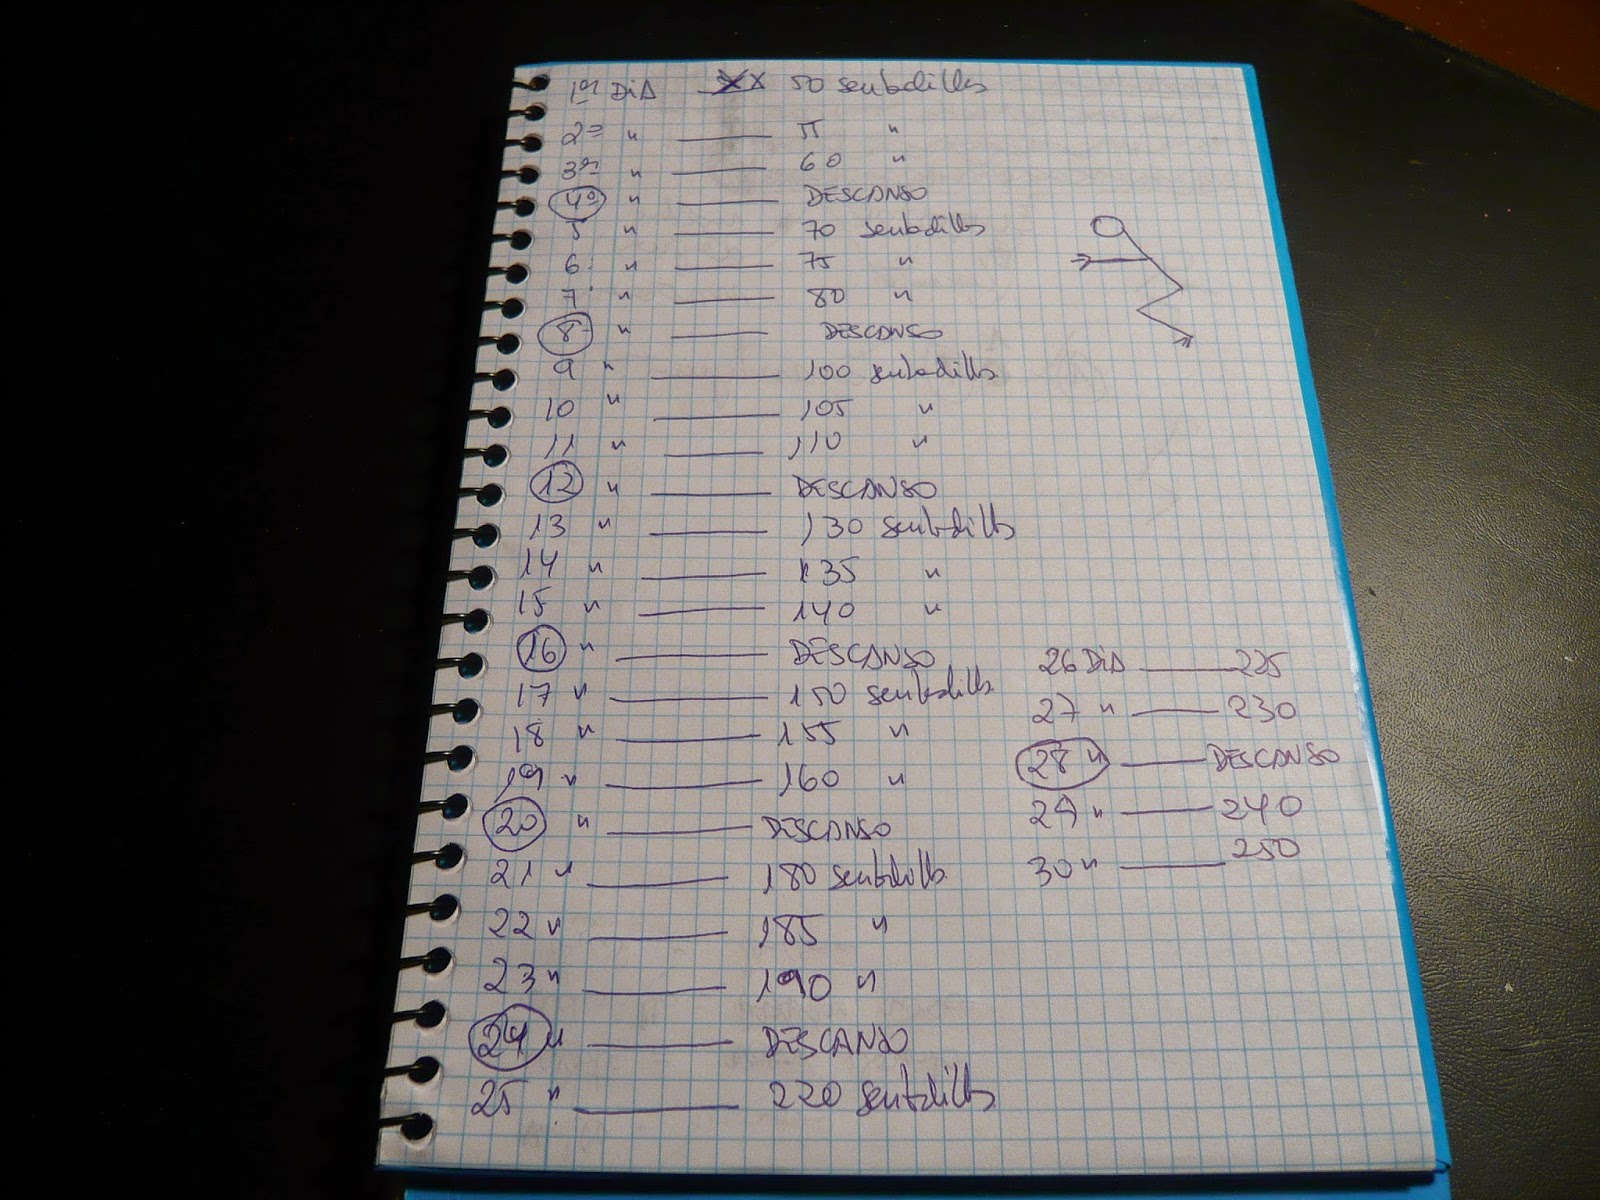 1er DÍA XX 50 sentadillas
2º " 55 "
3er " 60 "
4º " DESCANSO
5 " 70 sentadillas
6 " 75 "
7 " 80 "
8 " DESCANSO
9 " 100 sentadillas
10 " 105 "
11 " 110 "
12 " DESCANSO
13 " 130 sentadillas
14 " 135 "
15 " 140 "
16 " DESCANSO
17 " 150 sentadillas
18 " 155 "
19 " 160 "
20 " DESCANSO
21 " 180 sentadillas
22 " 185 "
23 " 190 "
24 " DESCANSO
25 " 220 sentadillas
26 DÍA 225
27 " 230
28 " DESCANSO
29 " 240
30 " 250